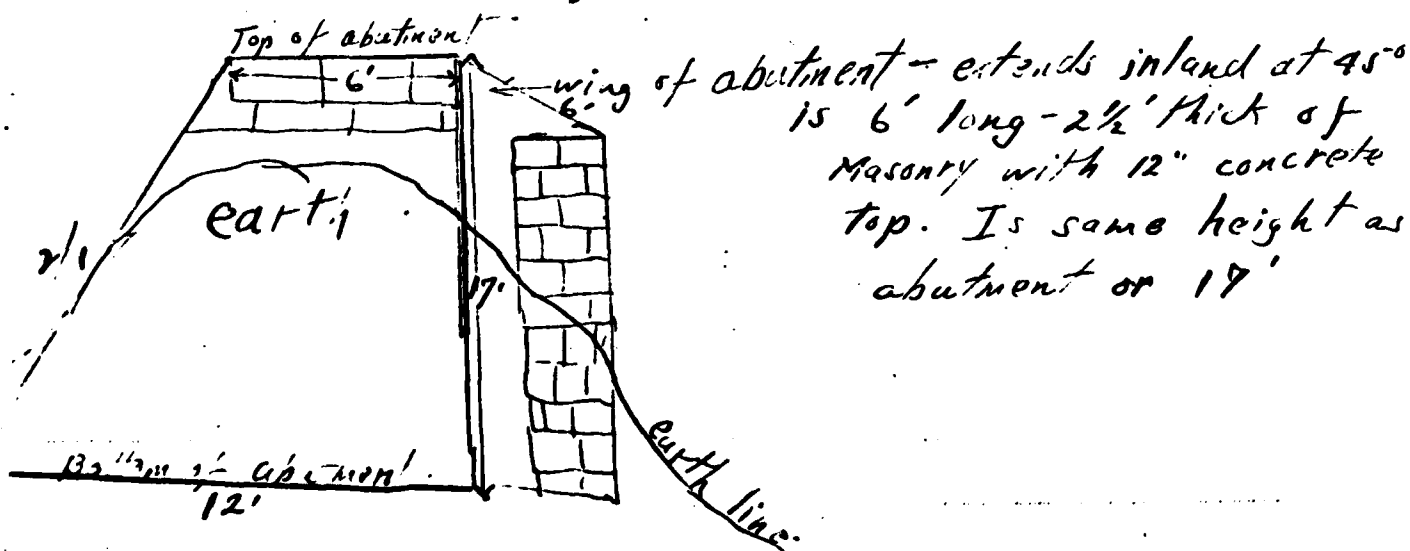 Top of abutment
6'
wing of abutment - extends inland at 45°
6'
is 6' long - 2½' thick of
Masonry with 12" concrete
top. Is same height as
abutment or 17'
earth
2/1
17'
Bottom of abutment
12'
earth line.